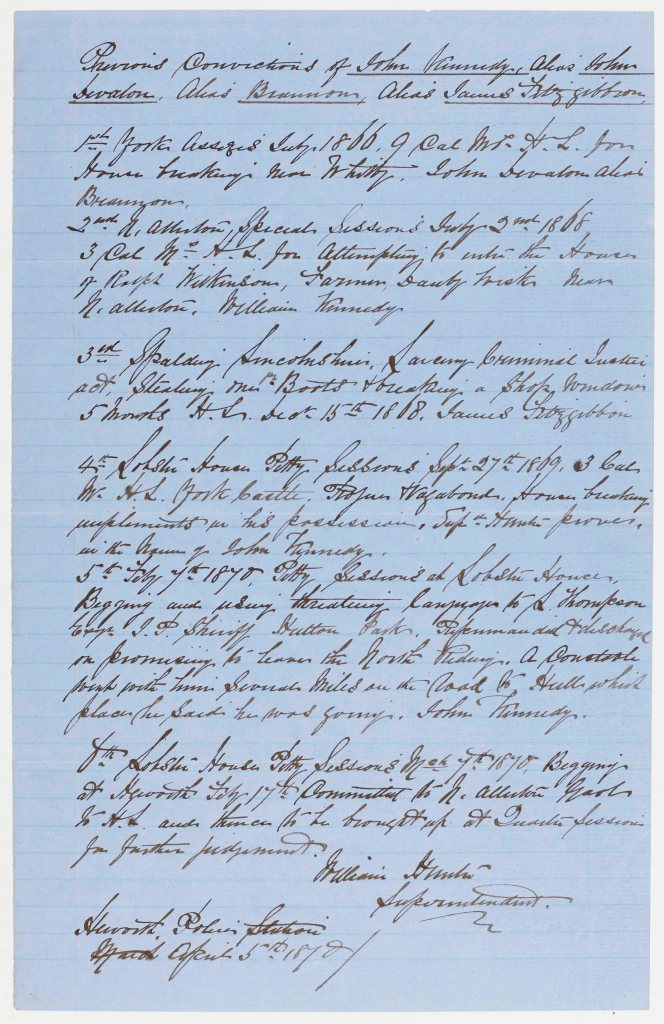 Previous Convictions of John Kennedy, Alias John
Devalon, Alias Brannon, Alias James Fitzgibbon,
1st York Assizes July 1866. 9 Cal Mos H. L. for
House breaking near Whitby. John Devalon Alias
Brannon,
2nd N. Allerton, Special Sessions July 2nd 1868
3 Cal Ms H. L. for Attempting to enter the House
of Ralph Wilkinson, Farmer, Danby Wiske Near
N. allerton. William Kennedy
3rd Spalding Lincolnshire, Larceny Criminal Justice
act, Stealing one pr Boots & breaking a Shop Window
5 Months H. L. Decr 15th 1868. James Fitzgibbon
4th Lobster House Petty Sessions Sept 27th 1869. 3 Cal
Ms H. L. York Castle. Rogue & Vagabond, House breaking
implements in his possession. Supt Hunter proves.
in the Name of John Kennedy.
5th Feby 7th 1870 Petty Sessions at Lobster House,
Begging and using threatning language to L Thompson
Esqr J. P. Sheriff Hutton Park. Reprimanded & discharged
on promising to leave the North Riding. A Constable
went with him Several Miles on the road to Hull which
place he said he was going. John Kennedy.
6th Lobster House Petty Sessions Mch 7th 1870, Begging
at Haworth Feby 17th Committed to N. Allerton Gaol
to H. L. and thence to be brought up at Quarter Sessions
for further judgement.
William Hunter
Superintendent.
Police Station
March April 5th 1870